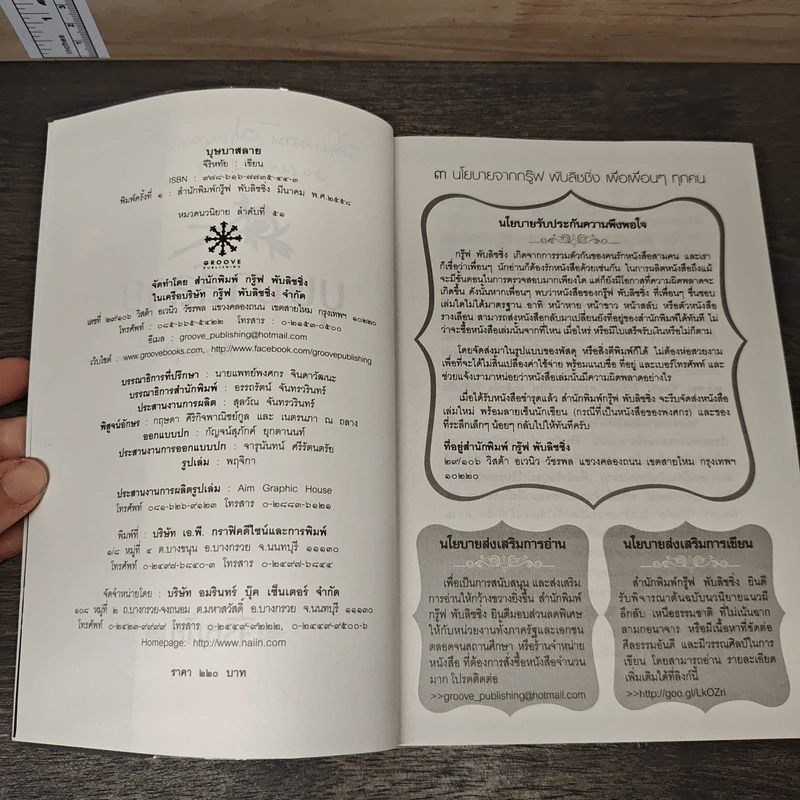 บุษบาสลาย
จิรีหทัย : เขียน
ISBN : ๙๗๘-๖๑๖-๗๗๓๕-๔๔-๓
พิมพ์ครั้งที่ ๑ : สำนักพิมพ์กรู๊ฟ พับลิชชิ่ง มีนาคม พ.ศ.๒๕๕๘
หมวดนวนิยาย ลำดับที่ ๕๑
GROOVE
PUBLISHING
จัดทำโดย สำนักพิมพ์ กรู๊ฟ พับลิชชิ่ง
ในเครือบริษัท กรู๊ฟ พับลิชชิ่ง จำกัด
เลขที่ ๒๙/๑๐๖ วิสต้า อเวนิว วัชรพล แขวงคลองถนน เขตสายไหม กรุงเทพฯ ๑๐๒๒๐
โทรศัพท์ : ๐๘๕-๖๖๕-๕๔๒๒ โทรสาร : ๐-๒๑๕๓-๐๕๐๐
อีเมล : groove_publishing@hotmail.com
เว็บไซต์ : www.groovebooks.com, http://www.facebook.com/groovepublishing
บรรณาธิการที่ปรึกษา : นายแพทย์พงศกร จินดาวัฒนะ
บรรณาธิการสำนักพิมพ์ : อรรถรัตน์ จันทรวรินทร์
ประสานงานการผลิต : สุลวัณ จันทรวรินทร์
พิสูจน์อักษร : กฤษดา ศิริกิจพาณิชย์กูล และ เนตรนภา ณ ถลาง
ออกแบบปก : กัญจน์สุภักค์ ยุกตานนท์
ประสานงานการออกแบบปก : จารุนันทน์ ศรีรัตนตรัย
รูปเล่ม : พฤจิกา
ประสานงานการผลิตรูปเล่ม : Aim Graphic House
โทรศัพท์ ๐๘๑-๖๒๖-๙๑๒๓ โทรสาร ๐-๒๘๘๓-๖๑๒๑
พิมพ์ที่ : บริษัท เอ.พี. กราฟิคดีไซน์และการพิมพ์
๑/๘ หมู่ที่ ๔ ต.บางขนุน อ.บางกรวย จ.นนทบุรี ๑๑๑๓๐
โทรศัพท์ ๐-๒๔๙๗-๖๘๔๐-๓ โทรสาร ๐-๒๔๙๗-๖๘๔๔
จัดจำหน่ายโดย : บริษัท อมรินทร์ บุ๊ค เซ็นเตอร์ จำกัด
๑๐๘ หมู่ที่ ๒ ถ.บางกรวย-จงถนอม ต.มหาสวัสดิ์ อ.บางกรวย จ.นนทบุรี ๑๑๑๓๐
โทรศัพท์ ๐-๒๔๒๓-๙๙๙๙ โทรสาร ๐-๒๔๔๙-๙๒๒๒, ๐-๒๔๔๙-๙๕๐๐-๖
Homepage: http://www.naiin.com
ราคา ๒๒๐ บาท
๓ นโยบายจากกรู๊ฟ พับลิชชิ่ง เพื่อเพื่อนๆ ทุกคน
นโยบายรับประกันความพึงพอใจ
กรู๊ฟ พับลิชชิ่ง เกิดจากการรวมตัวกันของคนรักหนังสือสามคน และเรา
ก็เชื่อว่าเพื่อนๆ นักอ่านก็ต้องรักหนังสือด้วยเช่นกัน ในการผลิตหนังสือถึงแม้
จะมีขั้นตอนในการตรวจสอบมากเพียงใด แต่ก็ยังมีโอกาสที่ความผิดพลาดจะ
เกิดขึ้น ดังนั้นหากเพื่อนๆ พบว่าหนังสือของกรู๊ฟ พับลิชชิ่ง ที่เพื่อนๆ ชื่นชอบ
เล่มใดไม่ได้มาตรฐาน อาทิ หน้าหาย หน้าขาว หน้าสลับ หรือตัวหนังสือ
รางเลือน สามารถส่งหนังสือกลับมาเปลี่ยนยังที่อยู่ของสำนักพิมพ์ได้ทันที ไม่
ว่าจะซื้อหนังสือเล่มนั้นจากที่ไหน เมื่อไหร่ หรือมีใบเสร็จรับเงินหรือไม่ก็ตาม
โดยจัดส่งมาในรูปแบบของพัสดุ หรือสิ่งตีพิมพ์ก็ได้ ไม่ต้องห่อสวยงาม
เพื่อที่จะได้ไม่สิ้นเปลืองค่าใช้จ่าย พร้อมแนบชื่อ ที่อยู่ และเบอร์โทรศัพท์ และ
ช่วยแจ้งเรามาหน่อยว่าหนังสือเล่มนั้นมีความผิดพลาดอย่างไร
เมื่อได้รับหนังสือชำรุดแล้ว สำนักพิมพ์กรู๊ฟ พับลิชชิ่ง จะรีบจัดส่งหนังสือ
เล่มใหม่ พร้อมลายเซ็นนักเขียน (กรณีที่เป็นหนังสือของพงศกร) และของ
ที่ระลึกเล็กๆ น้อยๆ กลับไปให้ทันทีครับ
ที่อยู่สำนักพิมพ์ กรู๊ฟ พับลิชชิ่ง
๒๙/๑๐๖ วิสต้า อเวนิว วัชรพล แขวงคลองถนน เขตสายไหม กรุงเทพฯ
๑๐๒๒๐
นโยบายส่งเสริมการอ่าน
เพื่อเป็นการสนับสนุน และส่งเสริม
การอ่านให้กว้างขวางยิ่งขึ้น สำนักพิมพ์
กรู๊ฟ พับลิชชิ่ง ยินดีมอบส่วนลดพิเศษ
ให้กับหน่วยงานทั้งภาครัฐและเอกชน
ตลอดจนสถานศึกษา หรือร้านจำหน่าย
หนังสือ ที่ต้องการสั่งซื้อหนังสือจำนวน
มาก โปรดติดต่อ
>>groove_publishing@hotmail.com
นโยบายส่งเสริมการเขียน
สำนักพิมพ์กรู๊ฟ พับลิชชิ่ง ยินดี
รับพิจารณาต้นฉบับนวนิยายแนวผี
ลึกลับ เหนือธรรมชาติ ที่ไม่เน้นฉาก
ลามกอนาจาร หรือมีเนื้อหาที่ขัดต่อ
ศีลธรรมอันดี และมีวรรณศิลป์ในการ
เขียน โดยสามารถอ่าน รายละเอียด
เพิ่มเติมได้ที่ลิงก์นี้
>>http://goo.gl/LkOZri